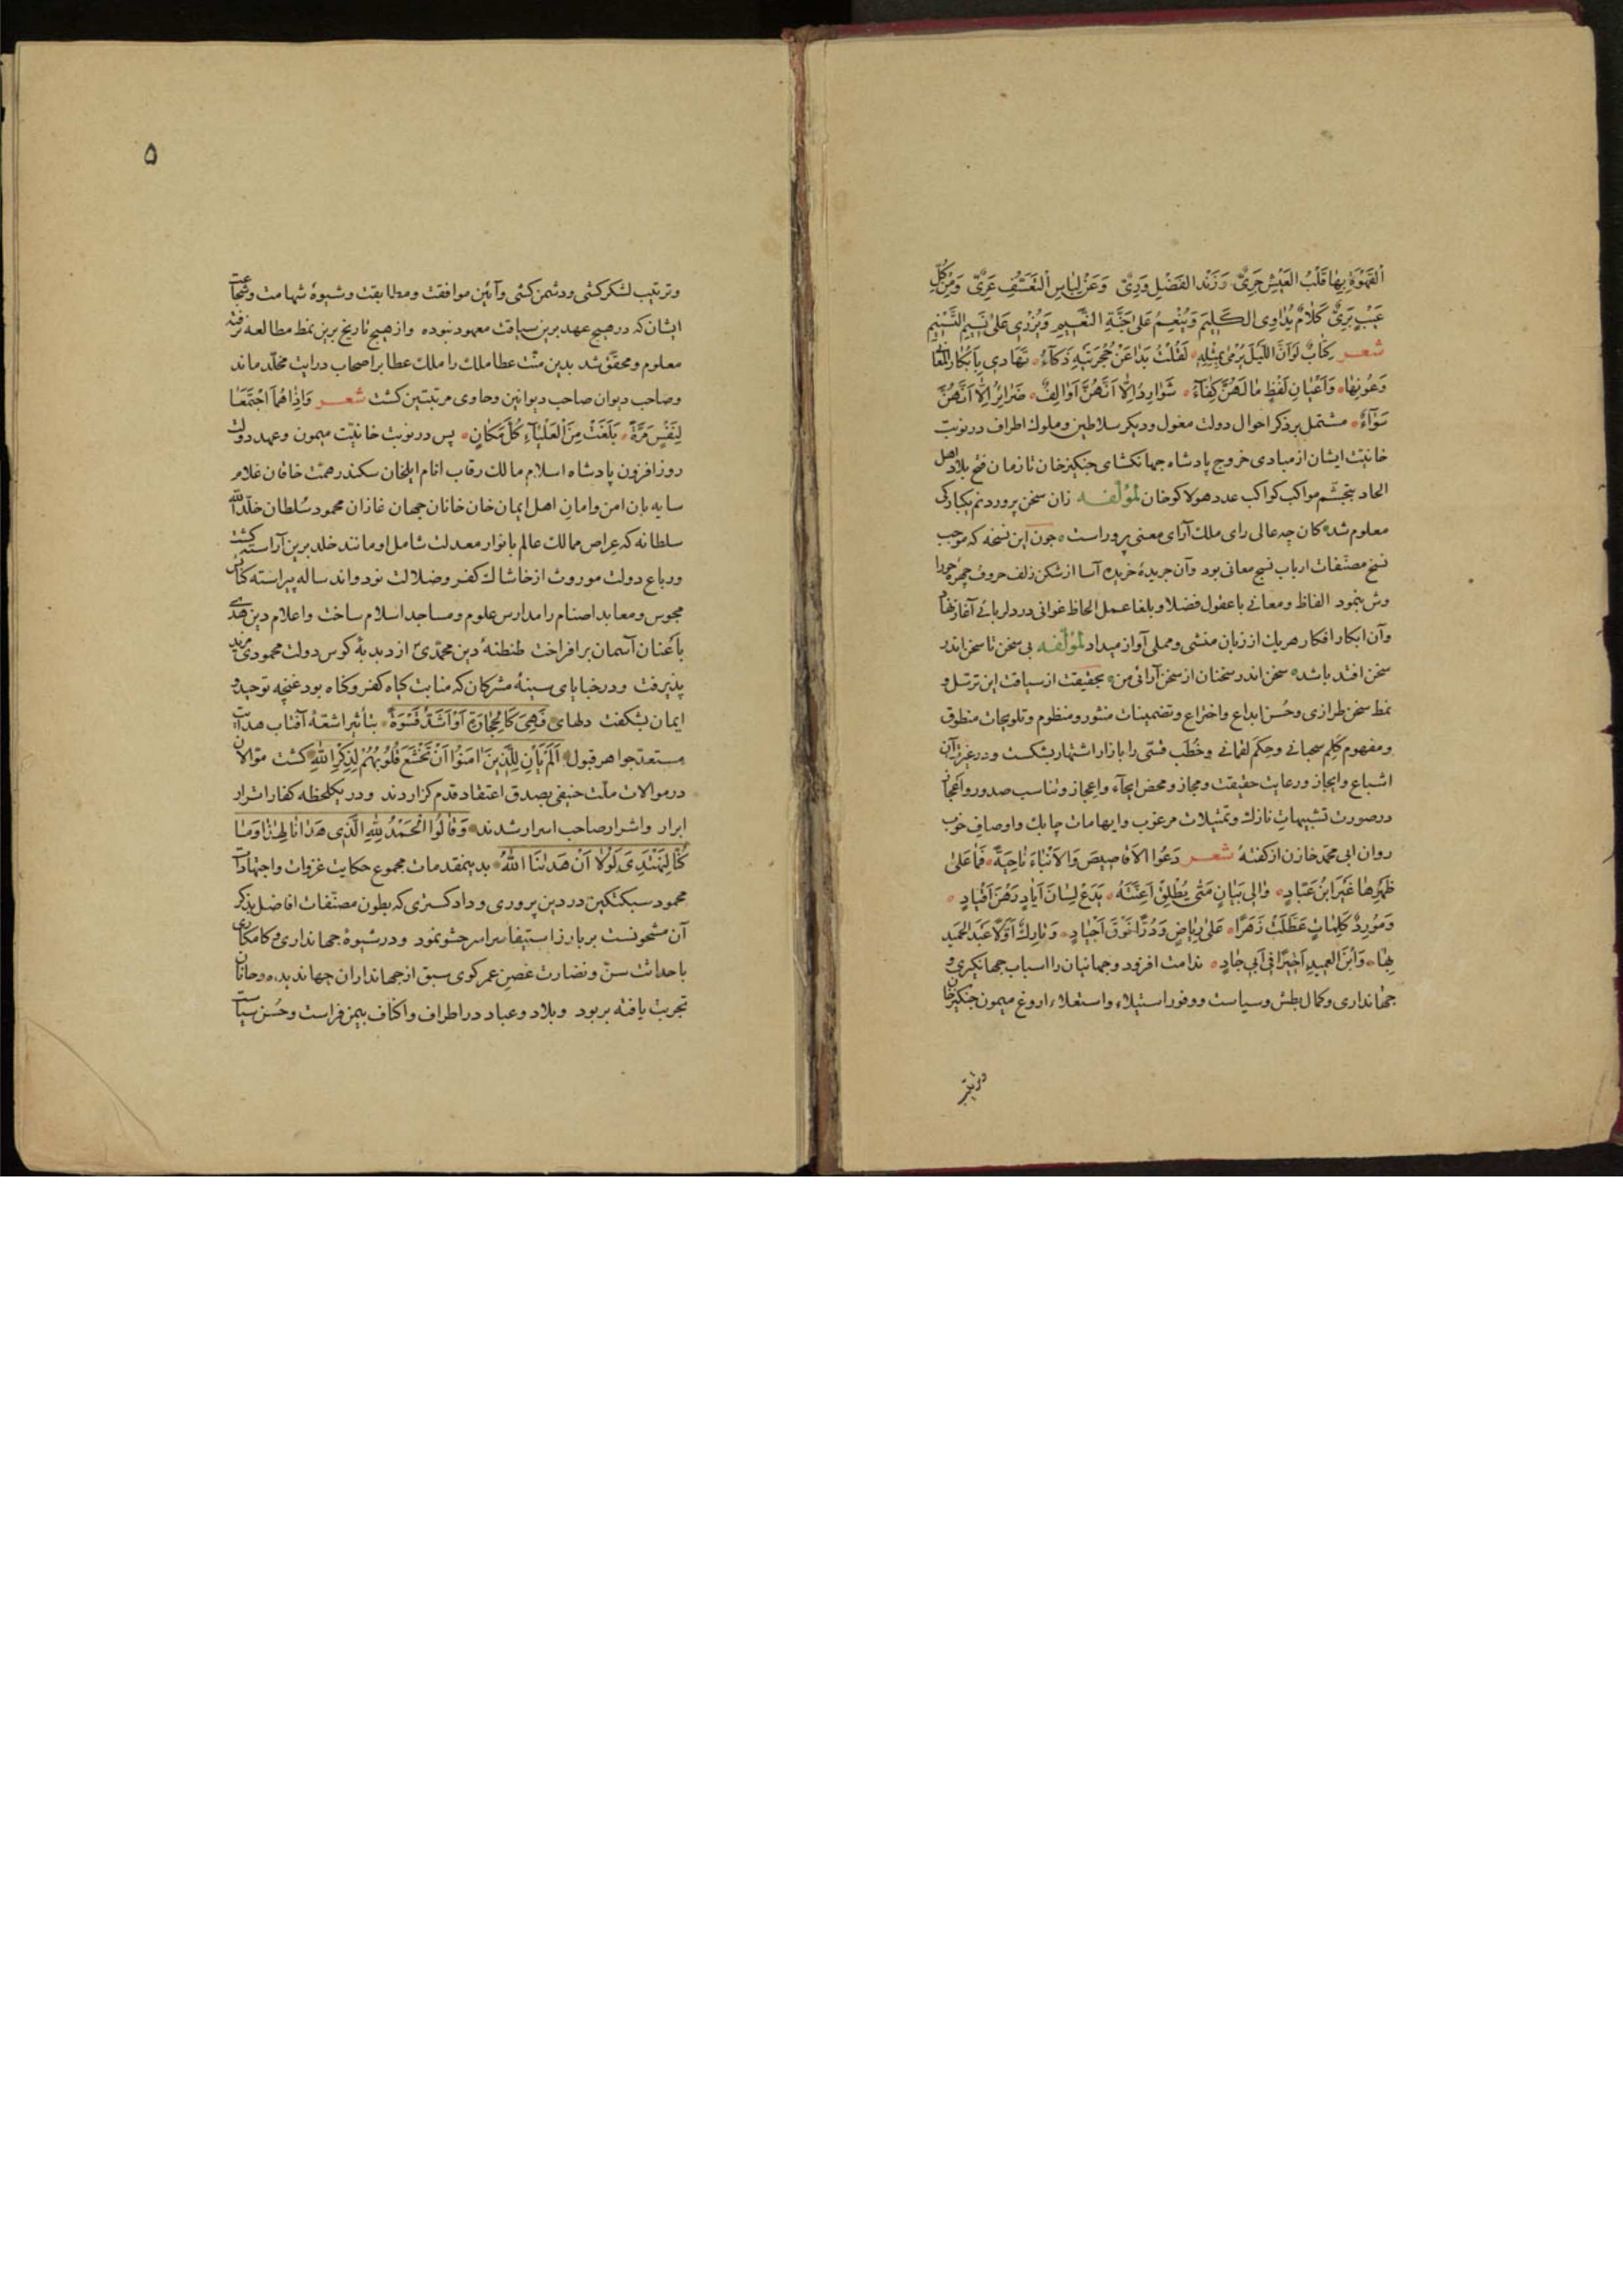 القهوة بها قلب العیش جریّ و زند الفضل وریّ وعن لباس التعسّف عریّ ومن کلّ
عیب بریّ کلام یداوی الکلیم وینعم علی جنّة النعیم ویزری علی نسیم التسنیم
شعر کتاب لو انّ اللیل یرمی بمثله لقلت بدا عن حجرتیه ذکاء تهادی بابکار المعانی
وعونها واعیان لفظ ما لهنّ کفاء شوارد الّا انّهنّ اوالف ضرایر الّا انّهنّ
سواء مشتمل بر ذکر احوال دولت مغول ودیکر سلاطین وملوک اطراف در نوبت
خانیت ایشان از مبادی خروج پادشاه جهانکشای جنکیزخان تا زمان فتح بلاد اهل
الحاد بتجشّم مواکب کواکب عدد هولاکوخان لمؤلفه زان سخن پروردنم یکبارکی
معلوم شد کان چه عالی رای ملک آرای معنی پرور است جون این نسخه که موجب
نسخ مصنّفات ارباب نسج معانی بود وآن جریدهٔ خریده آسا از شکن زلف حروف چهره حورا
وش بنمود الفاظ ومعانی با عقول فضلا وبلغا عمل الحاظ غوانی در دلربائی آغاز نهاد
وآن ابکار افکار هریک از زبان منشی ومملی آواز میداد لمؤلفه بی سخن تا سخن اندر
سخن افتد باشد سخن اندر سخنان از سخن آرائی من بحقیقت از سیاقت این ترسّل و
نمط سخن طرازی وحسن ابداع واختراع وتضمینات منثور ومنظوم وتلویحات منطوق
ومفهوم کلم سحبانی وحکم لقمانی وخطب قسّی را بازار اشتهار بشکست ودر عذوبت آن
اشباع وایجاز ورعایت حقیقت ومجاز ومحض ایحاء واعجاز وتناسب صدور واعجاز
در صورت تشبیهات نازک وتمثیلات مرغوب وایهامات چابک واوصاف خوب
روان ابی محمّد خازن از کفتهٔ شعر دعوا الاقاصیص والانباء ناحیة فما علی
ظهرها غیر ابن عبّاد والی بیان متی یطلق اعنّته یدع لسان ایاد رهن اقیاد
ومورد کلمات عطّلت زهرا علی ریاض ودرّا فوق اجیاد وتارک اوّلا عبد الحمید
بها وابن العمید اخیرا فی ابی جاد ندامت افزود وجهانیان را اسباب جهانکیری و
جهانداری وکمال بطش وسیاست ووفور استیلاء واستعلاء اروغ میمون جنکیزخان
وترتیب
۵
وترتیب لشکرکشی ودشمن کشی وآئین موافقت ومطابقت وشیوهٔ شهامت وشجاعت
ایشان که در هیچ عهد برین سیاقت معهود نبوده واز هیچ تاریخ برین نمط مطالعه نرفته
معلوم ومحقّق شد بدین منّت عطا ملک را ملک عطا بر اصحاب درایت مخلّد ماند
وصاحب دیوان صاحب دیوانین وحاوی مرتبتین کشت شعر واذا هما اجتمعا
لنفس مرّة بلغت من العلیاء کلّ مکان پس در نوبت خانیّت میمون وعهد دولت
روز افزون پادشاه اسلام مالک رقاب انام ایلخان سکندر همّت خاقان غلام
سایه بان امن وامان اهل ایمان خان خانان جهان غازان محمود سلطان خلّد الله
سلطانه که عراص ممالک عالم بانوار معدلت شامل او مانند خلد برین آراسته کشت
ورباع دولت موروث از خاشاک کفر وضلالت نود واند ساله پیراسته کنائس
مجوس ومعابد اصنام را مدارس علوم ومساجد اسلام ساخت واعلام دین هدی
باعنان آسمان بر افراخت طنطنهٔ دین محمّدیّ از دبدبهٔ کوس دولت محمودی مزید
پذیرفت ودر خبایای سینهٔ مشرکان که منابت کیاه کفر وکاه بود غنچه توحید و
ایمان بشکفت دلهای فهی کالحجارة او اشدّ قسوة بتأثیر اشعّهٔ آفتاب هدایت
مستعدّ جواهر قبول الم یأن للذین امنوا ان تخشع قلوبهم لذکر الله کشت موّالان
در موالات ملّت حنیفی بصدق اعتقاد قدم کزاردند ودر یکلحظه کفار اترار
ابرار واشرار صاحب اسرار شدند وقالوا الحمد لله الذی هدانا لهذا وما
کنّا لنهتدی لولا ان هدینا الله بدینمقدمات مجموع حکایت غزوات واجتهادات
محمود سبکتکین در دین پروری وداد کستری که بطون مصنّفات افاضل بذکر
آن مشحونست بر بارز استیفا سراسر حشو نمود ودر شیوهٔ جهانداری وکامکاری
با حداثت سنّ ونضارت غصن عمر کوی سبق از جهانداران جهاندیده وخانان
تجربت یافته بربود وبلاد وعباد در اطراف واکناف بیمن فراست وحسن سیاست